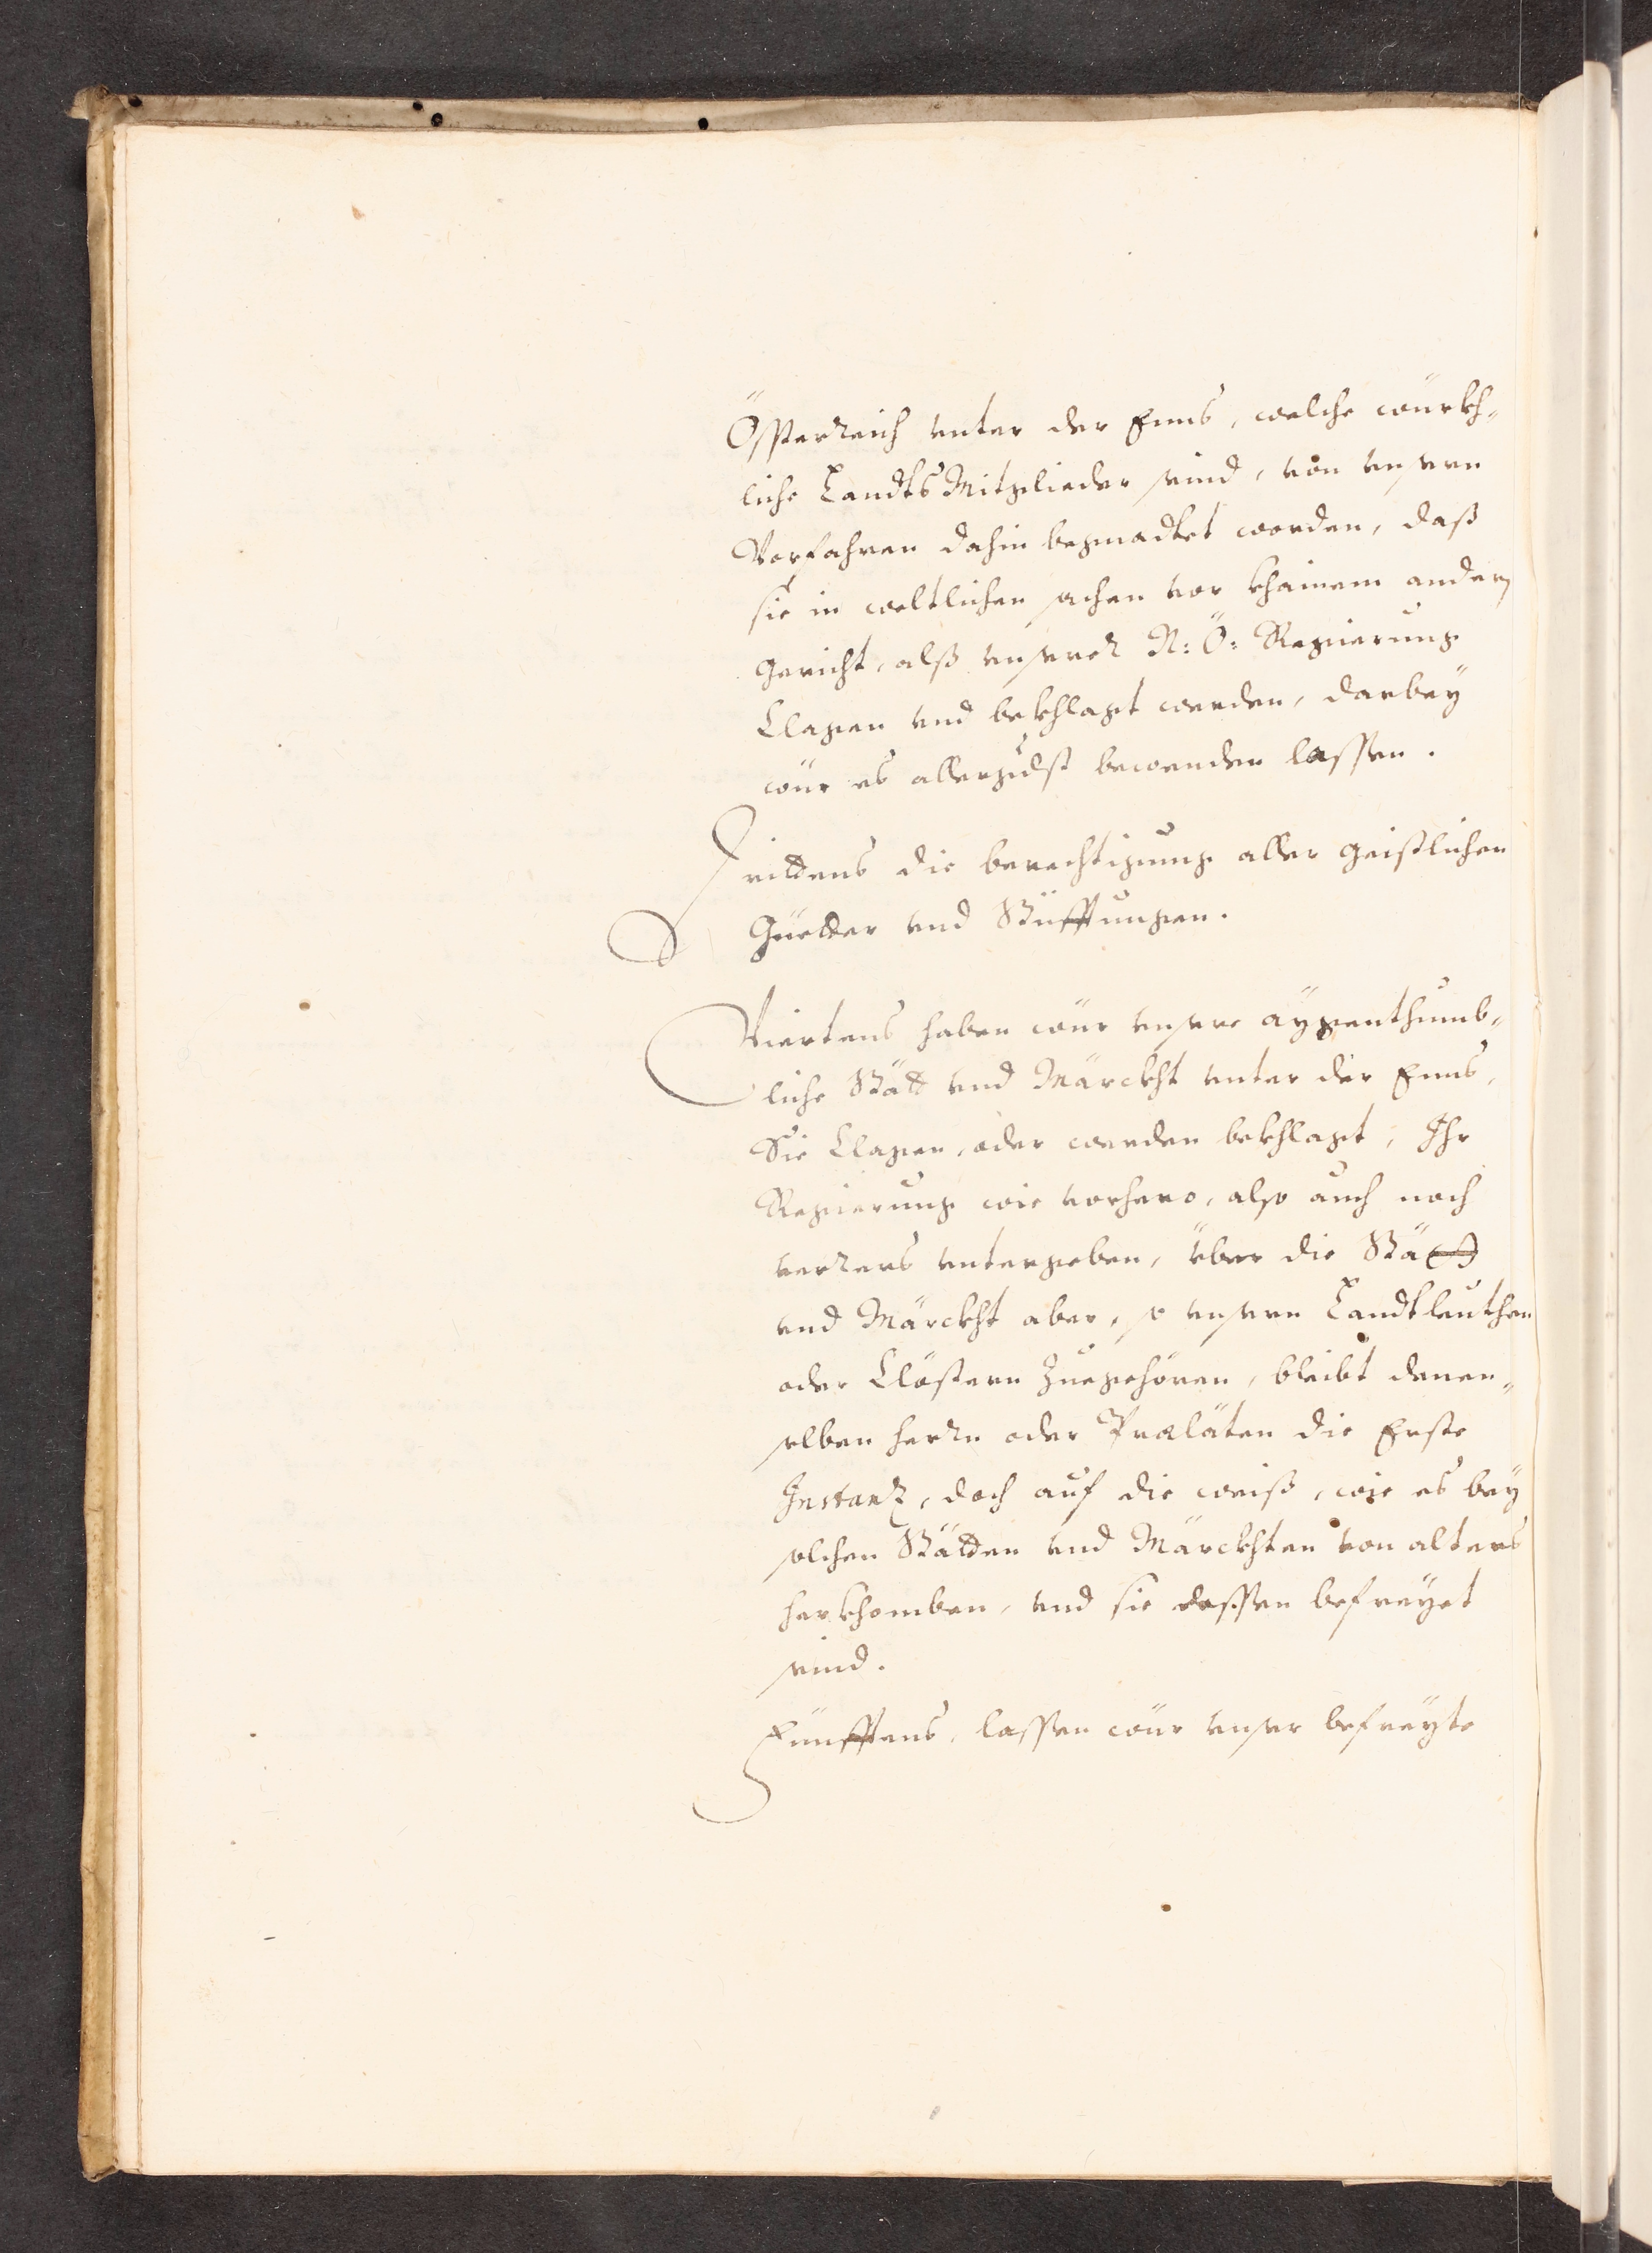 Össterreich vnter der Enns, welche würkh-
liche Landts Mitglieder seind, von vnsern
Vorfahren dahin begnadtet worden, daß
sie in weltlichen sachen vor khainem andern
Gericht, alß vnserer N: Ö: Regierung
Clagen vnd bekhlagt werden, darbey
wür es allergdst bewenden lassen.
Drittens die berechtigung aller Geistlichen
Güetter vnd Stüfftungen.
Viertens haben wür vnsere äygenthumb-
liche Stätt vnd Märckht vnter der Enns,
Sie Clagen, oder werden bekhlagt, Ihr
Regierung wie vorhero, also auch noch
verrers vntergeben, über die Stätt
vnd Märckht aber, so vnsern Landtleuthen
oder Clöstern Zuegehören, bleibt denen-
selben herrn oder Prælaten die Erste
Instantz, doch auf die weiß, wie es bey
solchen Stätten vnd Märckhten von alters
herkhomben, vnd sie dessen befreyet
seind.
Fünfftens, lassen wür vnser befreyte